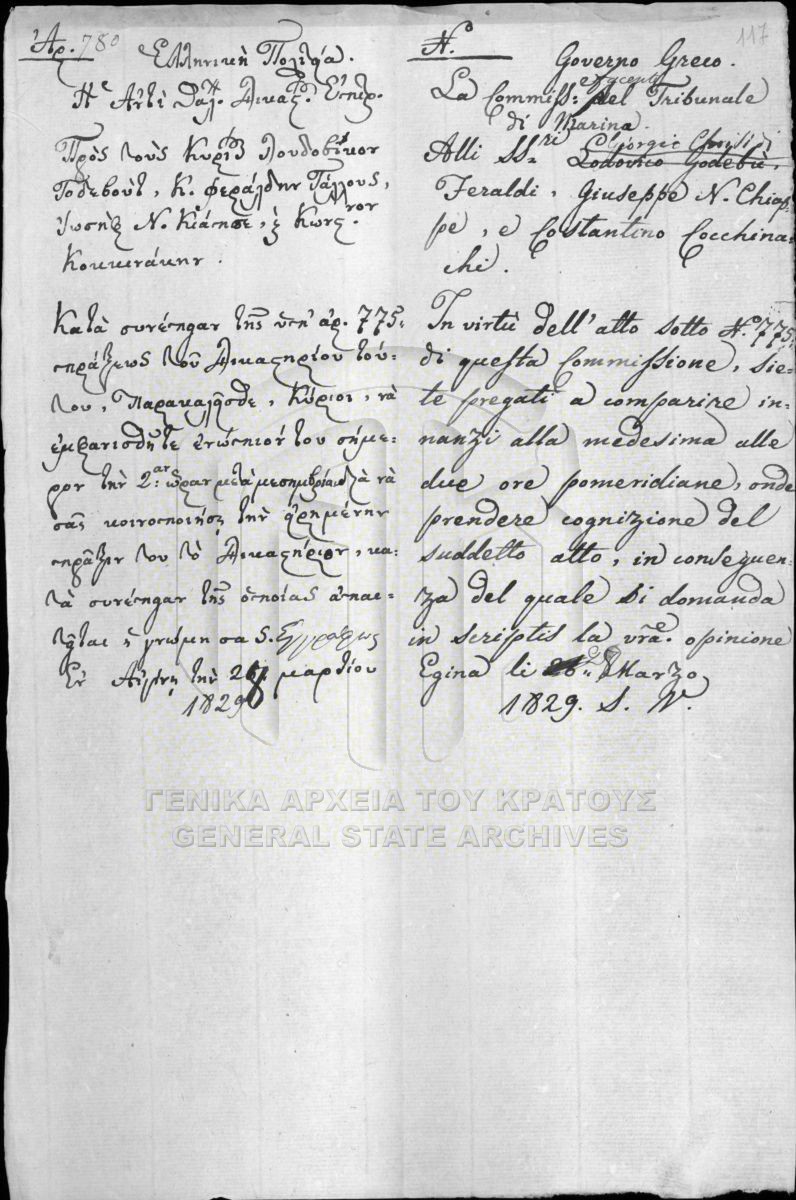 Ἀρ. 780
Ἑλληνικὴ Πολιτεία.
Ἡ Ἀντὶ Θαλ. Δικαστ. Ἐπιτρ.
Πρὸς τοὺς Κυρίους Λουδοβῖκον
Γοδεβούτ, Κ. Φεράλδην Γάλλους,
Ἰωσὴφ Ν. Κιάππε, ἐ Κωνς.νον
Κοκκινάκην.
Κατὰ συνέπειαν τῆς ὑπ' ἀρ. 775.
πράξεως τοῦ Δικαστηρίου τού-
του, Παρακαλεῖσθε, Κύριοι, νὰ
ἐμφανισθῆτε ἐνώπιόν του σήμε-
ρον τὴν 2.αν ὥραν μετὰ μεσημβρίαν διὰ νὰ
σᾶς κοινοποιήσῃ τὴν εἰρημένην
πρᾶξιν του τὸ Δικαστήριον, κα-
τὰ συνέπειαν τῆς ὁποίας ἀπαι-
τεῖται ἡ γνώμη σας Ἐγγράφως
Ἐν Αἰγίνῃ τὴν 28 μαρτίου
1829
117
N.
Governo Greco.
La Commiss: del Tribunale
di Marina.
Giorgio
Alli SS.ri Lodovico Godebù,
Feraldi, Giuseppe N. Chiap-
pe, e Costantino Cocchina-
chi.
In virtù dell' atto sotto N.o 775.
di questa Commissione, sie-
te pregati a comparire in-
nanzi alla medesima alle
due ore pomeridiane, onde
prendere cognizione del
suddetto atto, in conseguen-
za del quale si domanda
in scriptis la vra. opinione
Egina li 28 Marzo
1829. S. V.
ΓΕΝΙΚΑ ΑΡΧΕΙΑ ΤΟΥ ΚΡΑΤΟΥΣ
GENERAL STATE ARCHIVES